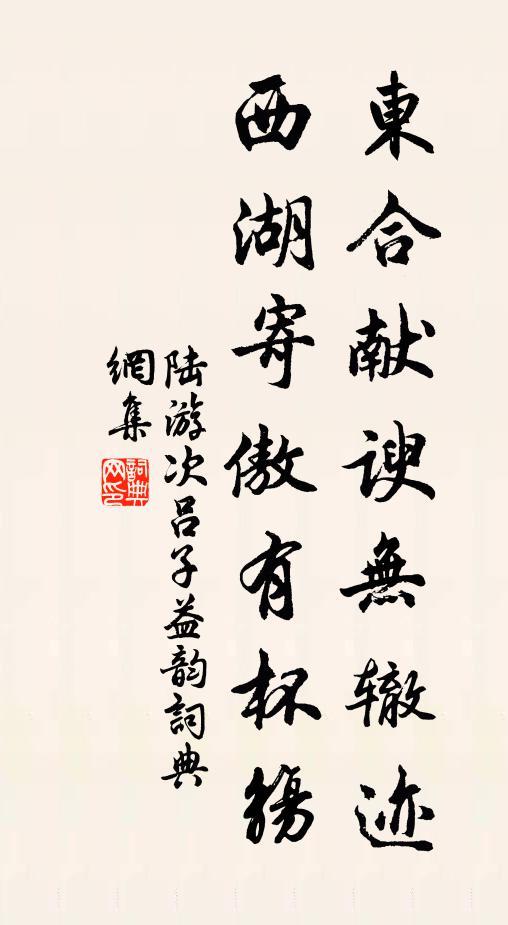 東合献謏無辙迹
西湖寄傲有杯觴
陆游次吕子益韵詞典
網集
詞典
网印